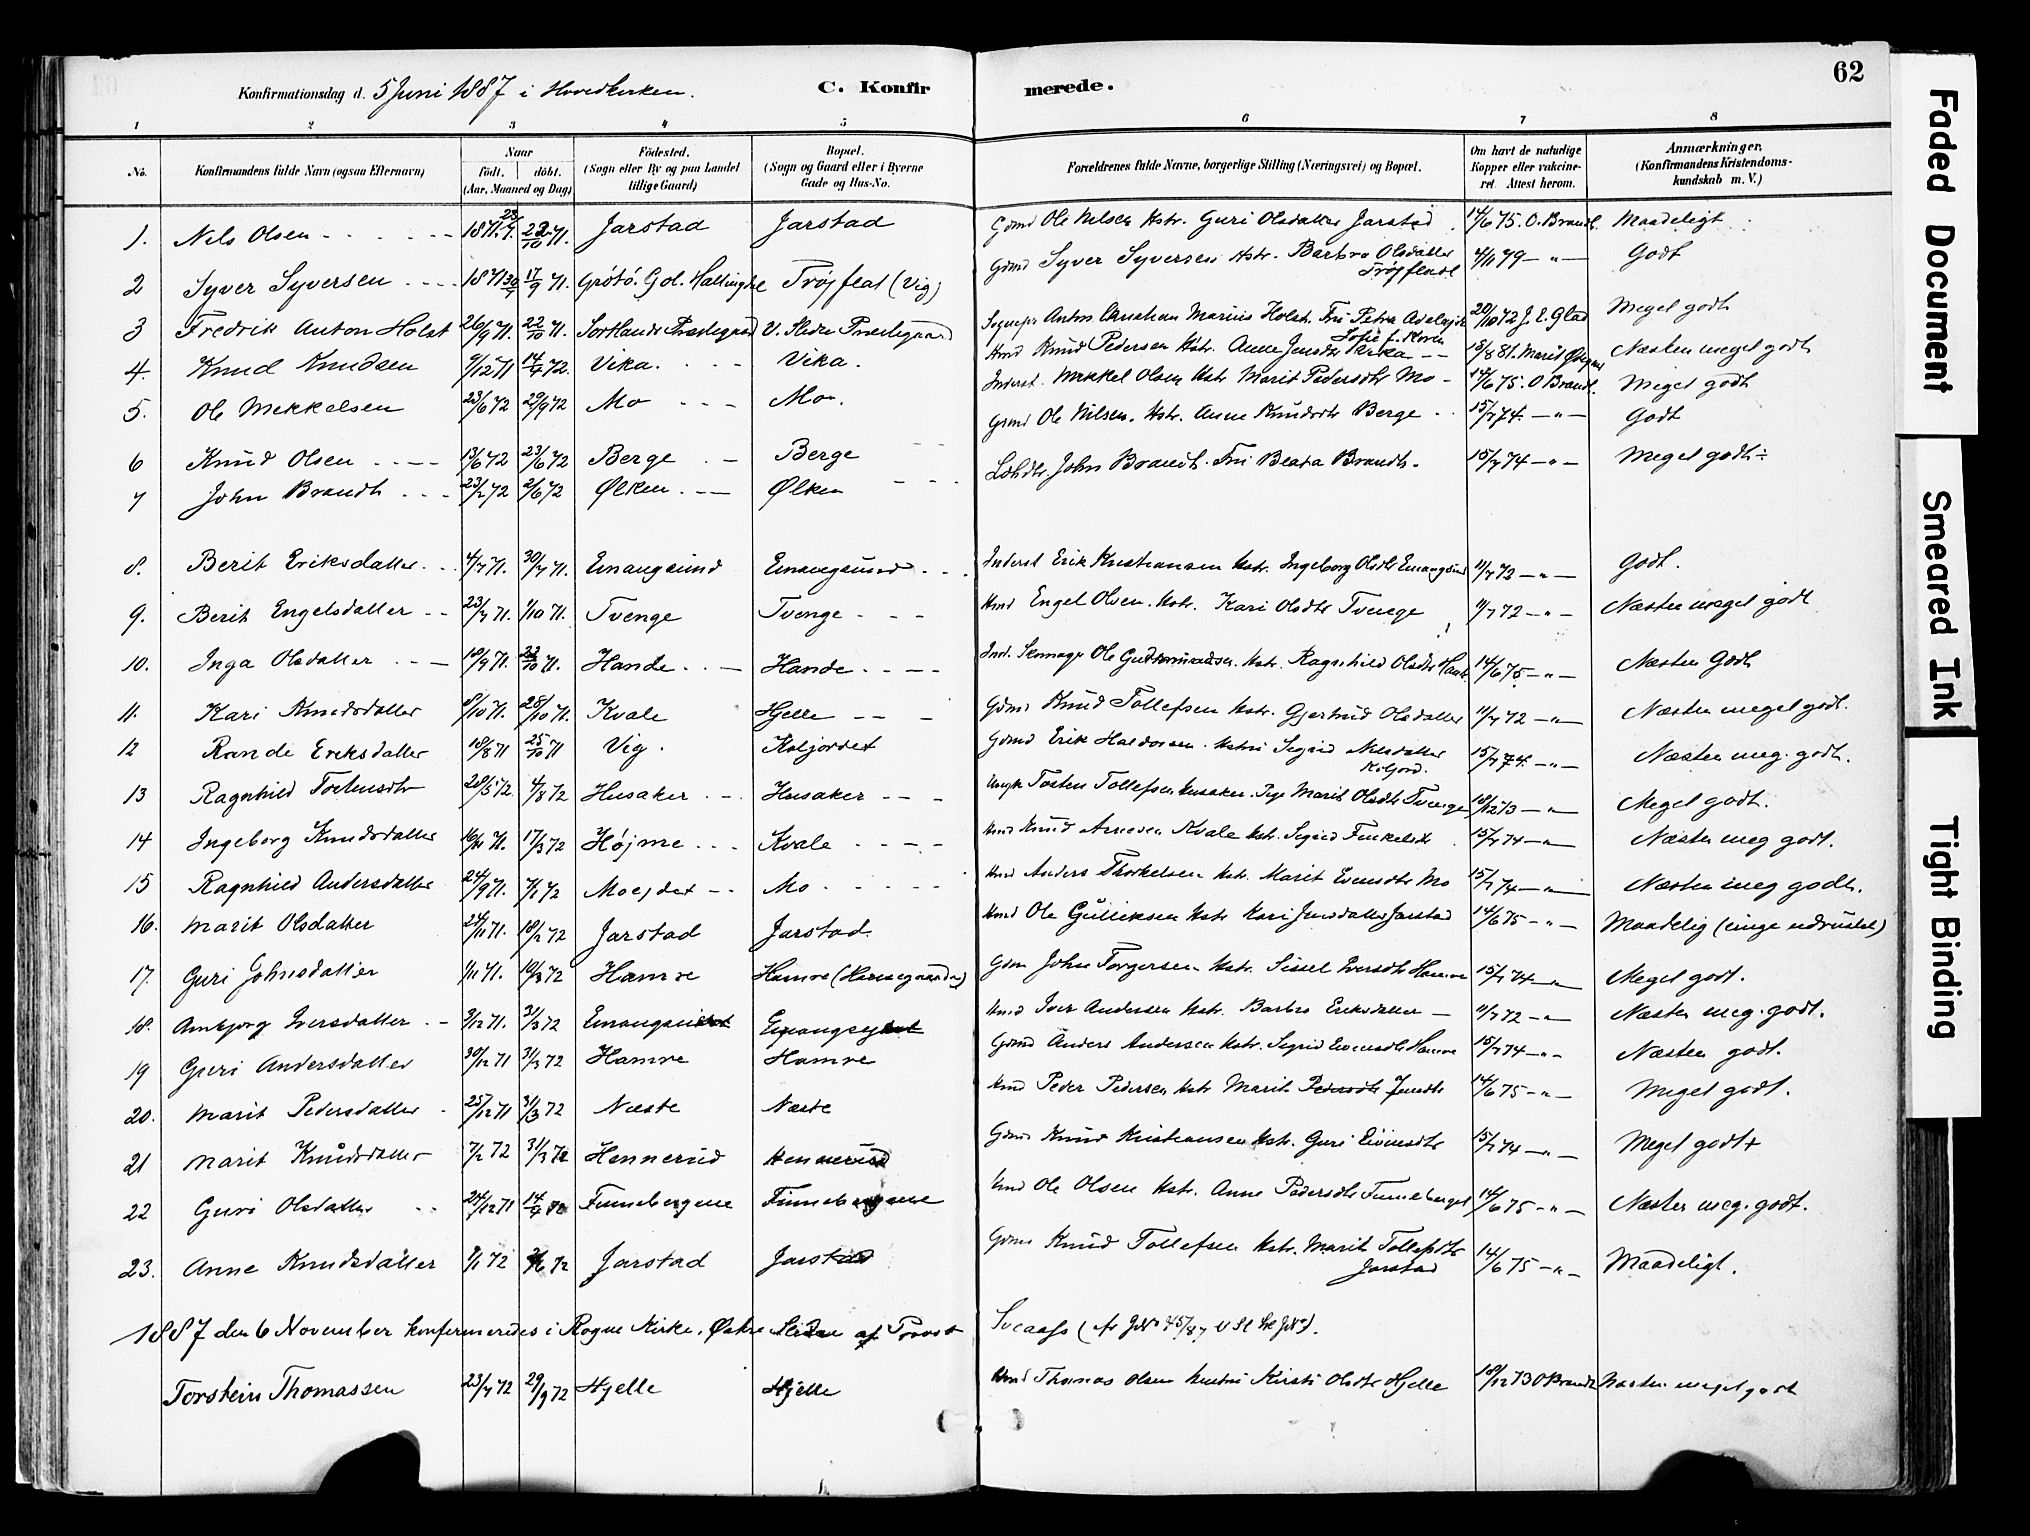 62
Konfirmationsdag d. 5 Juni 1887 i Hovedkirken. C. Konfir merede.
1 2 3 4 5 6 7 8
No. Konfirmandens fulde Navn (ogsaa Efternavn) Naar født. døbt. (Aar, Maaned og Dag) Fødested. (Sogn eller By og paa Landet tillige Gaard) Bopæl. (Sogn og Gaard eller i Byerne Gade og Hus-No. Forældrenes fulde Navne, borgerlige Stilling (Næringsvei) og Bopæl. Om havt de naturlige Kopper eller vakcineret. Attest herom. Anmærkninger. (Konfirmandens Kristendomskundskab m. V.)
1. Nils Olsen 1871 23/7. 22/10 71. Jarstad Jarstad Gdmd Ole Nilsen Hstr. Guri Olsdatter Jarstad 14/6 75. O. Brandt. Maadeligt
2 Syver Syversen 1871 30/7 17/9 71. Grøtø. Gol. Hallingdal Trøjfleat (Vig) Gdmd Syver Syversen Hstr. Barbro Olsdatter Trøjfleat 4/11 79 - " - Godt
3 Fredrik Anton Holst 26/9 71. 22/10 71. Sortlands Præstegaard V. Slidre Præstegaard Sognepr Anton Christian Marius Holst. Fru Petra Adelojde Sofie f. Koren 20/10 72 J. E. Glad Meget godt
4. Knud Knudsen 9/12 71 14/4 72. Vika. Vika. Hmd Knud Pedersen Hstr. Anne Jensdtr Vika 15/8 81. Marit Næsten meget godt
5. Ole Mekkelsen 23/6 72 29/9 72 Mo Mo. Inderst. Mekkel Olsen Hstr Marit Pedersdtr Mo 14/6 75. O Brandt. Meget godt
6 Knud Olsen 13/6 72 23/6 72 Berge Berge Gdmd Ole Nilsen. Hstr. Anne Knudsdtr Berge 15/7 74. - " - Godt
7 John Brandt 23/2 72 2/6 72 Ølken Ølken John Brandt. Fru Beata Brandt. 15/7 74 - " - Meget godt ÷
8. Berit Eriksdatter 4/7 71. 30/7 71. Emaugsund Emaugsund Inderst Erik Kristiansen Hstr. Ingeborg Olsdtr Emaugsund 11/7 72 - " - Godt.
9. Berit Engelsdatter 23/7 71. 1/10 71. Tvenge Tvenge Hmd Engel Olsen. Hstr. Kari Olsdtr Tvenge 11/7 72 - " - Næsten meget godt
10. Inga Olsdatter 10/9 71. 22/10 71. Hande Hande Ind. Skomager Ole Gudmundsen. Hstr. Ragnhild Olsdtr Hande 14/6 75 - " - Næsten Godt
11. Kari Knudsdatter 8/10 71. 25/10 71. Kvale Hjelle Gdmd Knud Tollefsen Hstr. Gjertrud Olsdatter 11/7 72 - " - Næsten meget godt.
12 Rande Eriksdatter 18/8 71 25/10 71 Vig. Koljordet Gdmd Erik Haldorsen. Hstru Sigrid Nilsdatter Koljord. 15/7 74. - " - Næsten meg. godt.
13 Ragnhild Tostensdtr 28/5 72 4/8 72 Husaker Husaker Ungk Tosten Tollefsen Husaker. Pige Marit Olsdtr Tvenge 18/12 73 - " Meget godt.
14 Ingeborg Knudsdatter 16/11 71. 17/3 72 Højme Kvale Hmd Knud Arnesen Kvale Hstr. Sigrid 15/7 74 - " - Næsten meg godt.
15 Ragnhild Andersdatter 24/9 71. 7/1 72 Moejdet Mo Hmd Anders Thorkelsen Hstr. Marit Evensdtr Mo 15/7 74 - " - Næsten meg godt.
16. Marit Olsdatter 24/11 71. 18/2 72 Jarstad Jarstad. Hmd Ole Gulliksen Hstr Kari Jensdatter Jarstad 14/6 75 - " - Maadelig (ringe udrustet)
17. Guri Johnsdatter 1/11 71. 10/3 72 Hamre Hamre (Hamregaarden) Gdm John Torgersen Hstr. Sissel Iversdtr Hamre 15/7 74 - " Meget godt.
18. Ambjørg Iversdatter 9/12 71. 31/3 72 Emaugsund Emaugsund Hmd Iver Andersen Hstr. Barbro Eriksdatter 11/7 72 - " - Næsten meg. godt.
19 Guri Andersdatter 30/12 71 31/3 72 Hamre Hamre Gdmd Anders Andersen Hstr. Sigrid Evensdtr Hamre 15/7 74 - " - Næsten godt.
20. Marit Pedersdatter 25/12 71 31/3 72 Næste Næste Hmd Peder Pedersen Hstr Marit Pedersdtr Jensdtr 14/6 75 - " - Meget godt.
21 Marit Knudsdatter 7/2 72 31/3 72 Hennerud Hennerud Gdmd Knud Kristiansen Hstr. Guri 15/7 74 - " - Meget godt +
22 Guri Olsdatter 24/12 71 14/4 72 Finnebergene Finnebergene Hmd Ole Olsen Hstr. Anne Pedersdtr Finneberget 14/6 75 - " - Næsten meg. godt.
23. Anne Knudsdatter 9/1 72 2/6 72 Jarstad Jarstad Gdmd Knud Tollefsen Hstr. Marit Tollefsdtr Jarstad 14/6 75 - " - Maadeligt.
1887 den 6 November konfirmeredes i Rogne Kirke, Østre Slidre af Provst
Torstein Thomassen 23/7 72 29/9 72 Hjelle Hjelle Hmd Thomas Olsen Hustru Kirsti Olsdtr Hjelle 18/12 73 O Brandt Næsten meget godt
Faded Document
Smeared Ink
Tight Binding